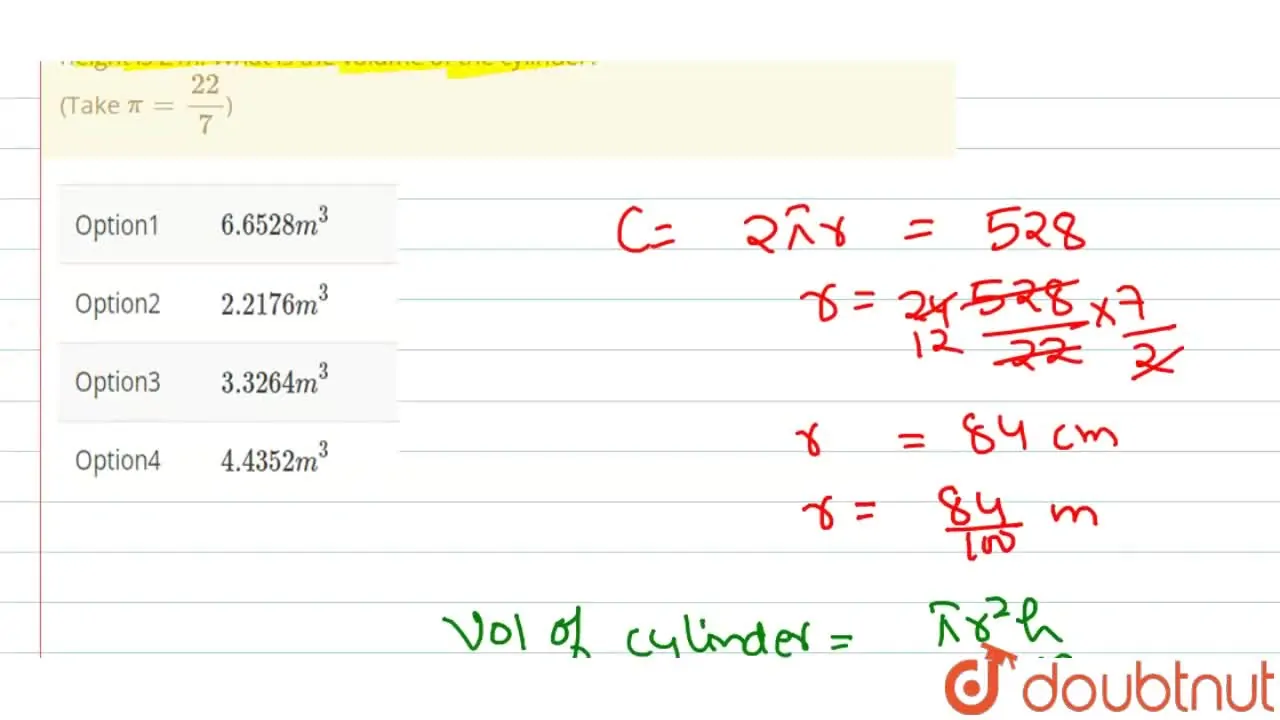 height is 2 m. What is the volume of the cylinder?
(Take π = 22/7)
Option1 6.6528m³
Option2 2.2176m³
Option3 3.3264m³
Option4 4.4352m³
C = 2πr = 528
r = 24 528/22 × 7/2
12
r = 84 cm
r = 84/100 m
Vol of cylinder = πr²h
doubtnut